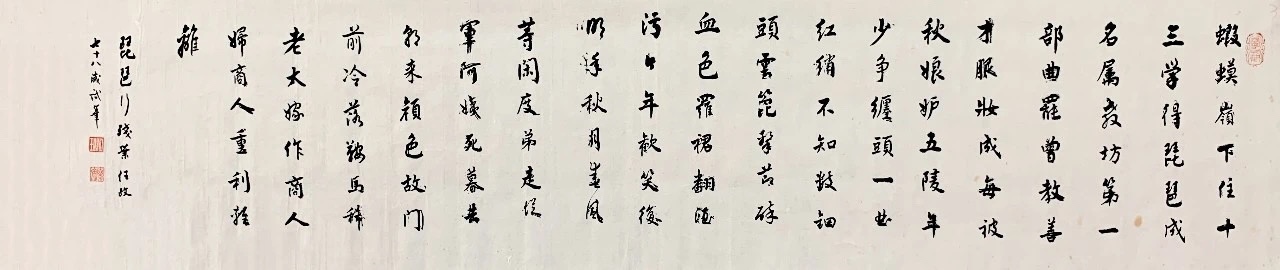 蝦蟆嶺下住十
三学得琵琶成
名属教坊第一
部曲罷曾教善
才服妝成每被
秋娘妒五陵年
少争纏頭一曲
红绡不知数钿
頭雲篦擊节碎
血色羅裙翻酒
污今年歡笑復
明年秋月春風
等闲度弟走從
軍阿姨死暮去
朝来顏色故门
前冷落鞍馬稀
老大嫁作商人
婦商人重利輕
離
琵琶行残葉
七十八歲試筆